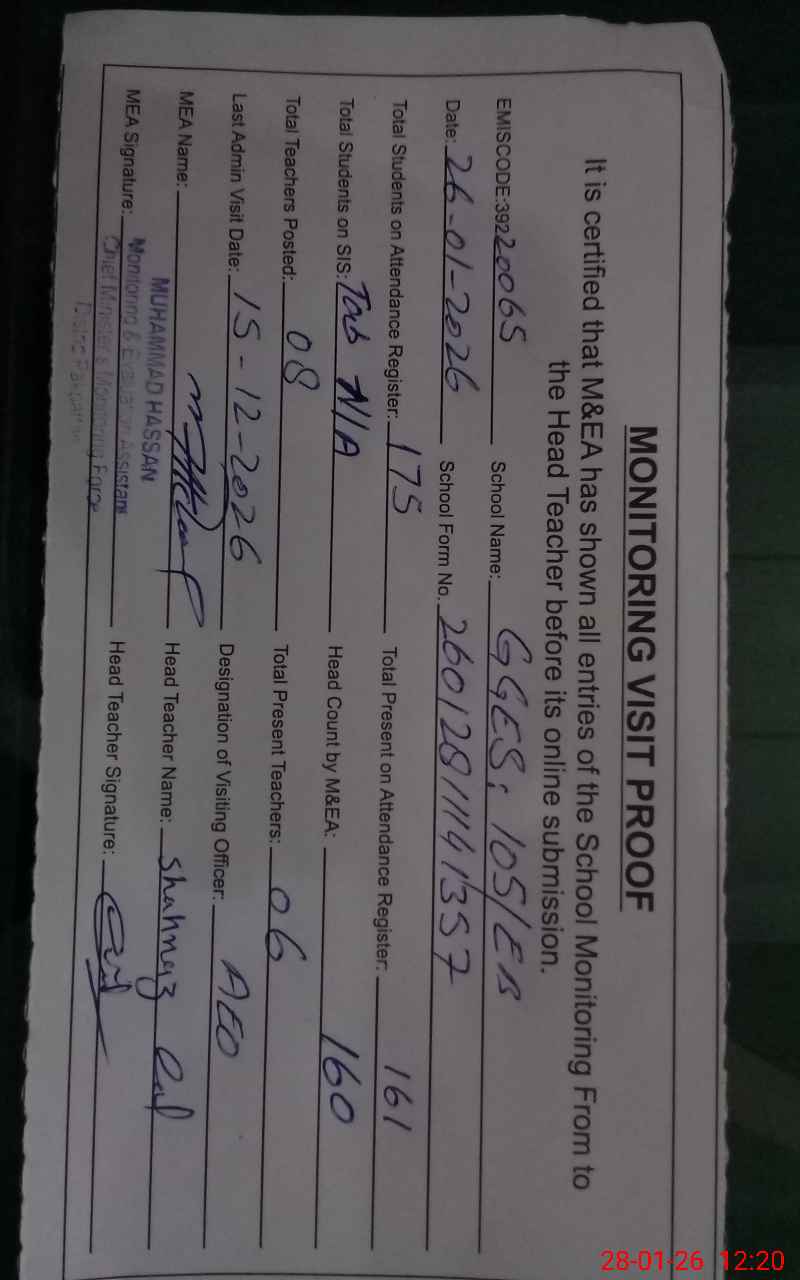 MONITORING VISIT PROOF
It is certified that M&EA has shown all entries of the School Monitoring From to
the Head Teacher before its online submission.
EMISCODE:39220065 School Name: GGES, 105/EB
Date: 26-01-2026 School Form No. 26012811141357
Total Students on Attendance Register: 175 Total Present on Attendance Register: 161
Total Students on SIS: Tab N/A Head Count by M&EA: 160
Total Teachers Posted: 08 Total Present Teachers: 06
Last Admin Visit Date: 15-12-2026 Designation of Visiting Officer: AEO
MEA Name: Head Teacher Name: Shahnaz
MUHAMMAD HASSAN
MEA Signature: Monitoring & Evaluation Assistant Head Teacher Signature:
Chief Minister's Monitoring Force
District Pakpattan
28-01-26 12:20